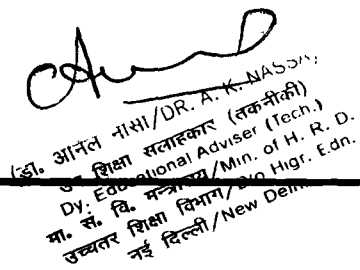 (डा. आनल नासा/DR. A. K. NASSA)
उप शिक्षा सलाहकार (तकनीकी)
Dy. Educational Adviser (Tech.)
मा. सं. वि. मन्त्रालय/Min. of H. R. D.
उच्चतर शिक्षा विभाग/D/o Higr. Edn.
नई दिल्ली/New Delhi